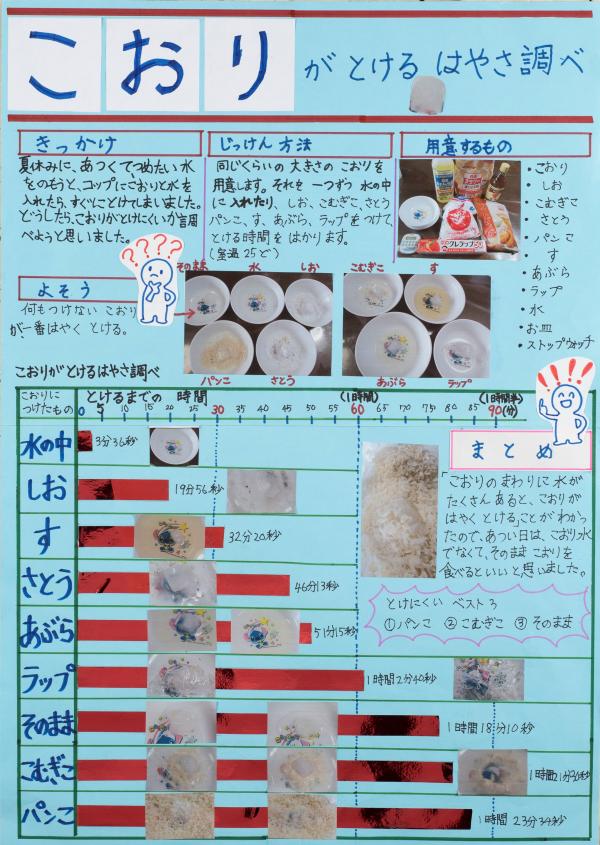 こおり が とける はやさ調べ
きっかけ
夏休みに、あつくてつめたい水
をのもうと、コップにこおりと水を
入れたら、すぐにとけてしまいました。
どうしたら、こおりがとけにくいか調
べようと思いました。
じっけん方法
同じくらいの大きさのこおりを
用意します。それを一つずつ水の中
に入れたり、しお、こむぎこ、さとう
パンこ、す、あぶら、ラップをつけて、
とける時間をはかります。
(室温25ど)
用意するもの
・こおり
・しお
・こむぎこ
・さとう
・パンこ
・す
・あぶら
・ラップ
・水
・お皿
・ストップウォッチ
????
よそう
何もつけない こおり
が、一番はやく とける。
そのまま 水 しお
こむぎこ す
パンこ さとう
あぶら ラップ
こおりがとけるはやさ調べ
こおりに
つけたもの
とけるまでの 時間
(1時間)
(1時間半)
0 5 10 15 20 25 30 35 40 45 50 55 60 65 70 75 80 85 90(分)
水の中 3分36秒
しお 19分56秒
す 32分20秒
さとう 46分13秒
あぶら 51分15秒
ラップ 1時間2分40秒
そのまま 1時間18分10秒
こむぎこ 1時間21分
パンこ 1時間23分34秒
!!!!
まとめ
「こおりのまわりに水が
たくさんあると、こおりが
はやくとける」ことがわかっ
たので、あつい日は、こおり水
でなくて、そのままこおりを
食べるといいと思いました。
とけにくい ベスト3
①パンこ ②こむぎこ ③そのまま